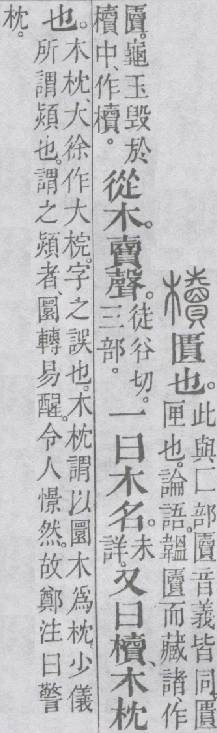 櫝匵也。
此與匚部匵音義皆同。匵
匣也。論語。韞匵而藏諸作
匵。龜玉毀於
櫝中、作櫝。
從木。賣聲。
徒谷切。
三部。
一曰木名。
未
詳。
又曰櫝、木枕
也。
木枕、大徐作大梡。字之誤也。木枕謂以圜木爲枕。少儀
所謂熲也。謂之熲者、圜轉易醒。令人憬然。故鄭注曰警
枕。